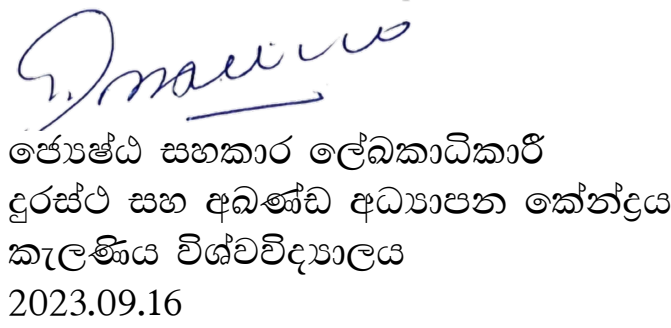 ජ්‍යෙෂ්ඨ සහකාර ලේඛකාධිකාරී
දුරස්ථ සහ අඛණ්ඩ අධ්‍යාපන කේන්ද්‍රය
කැලණිය විශ්වවිද්‍යාලය
2023.09.16